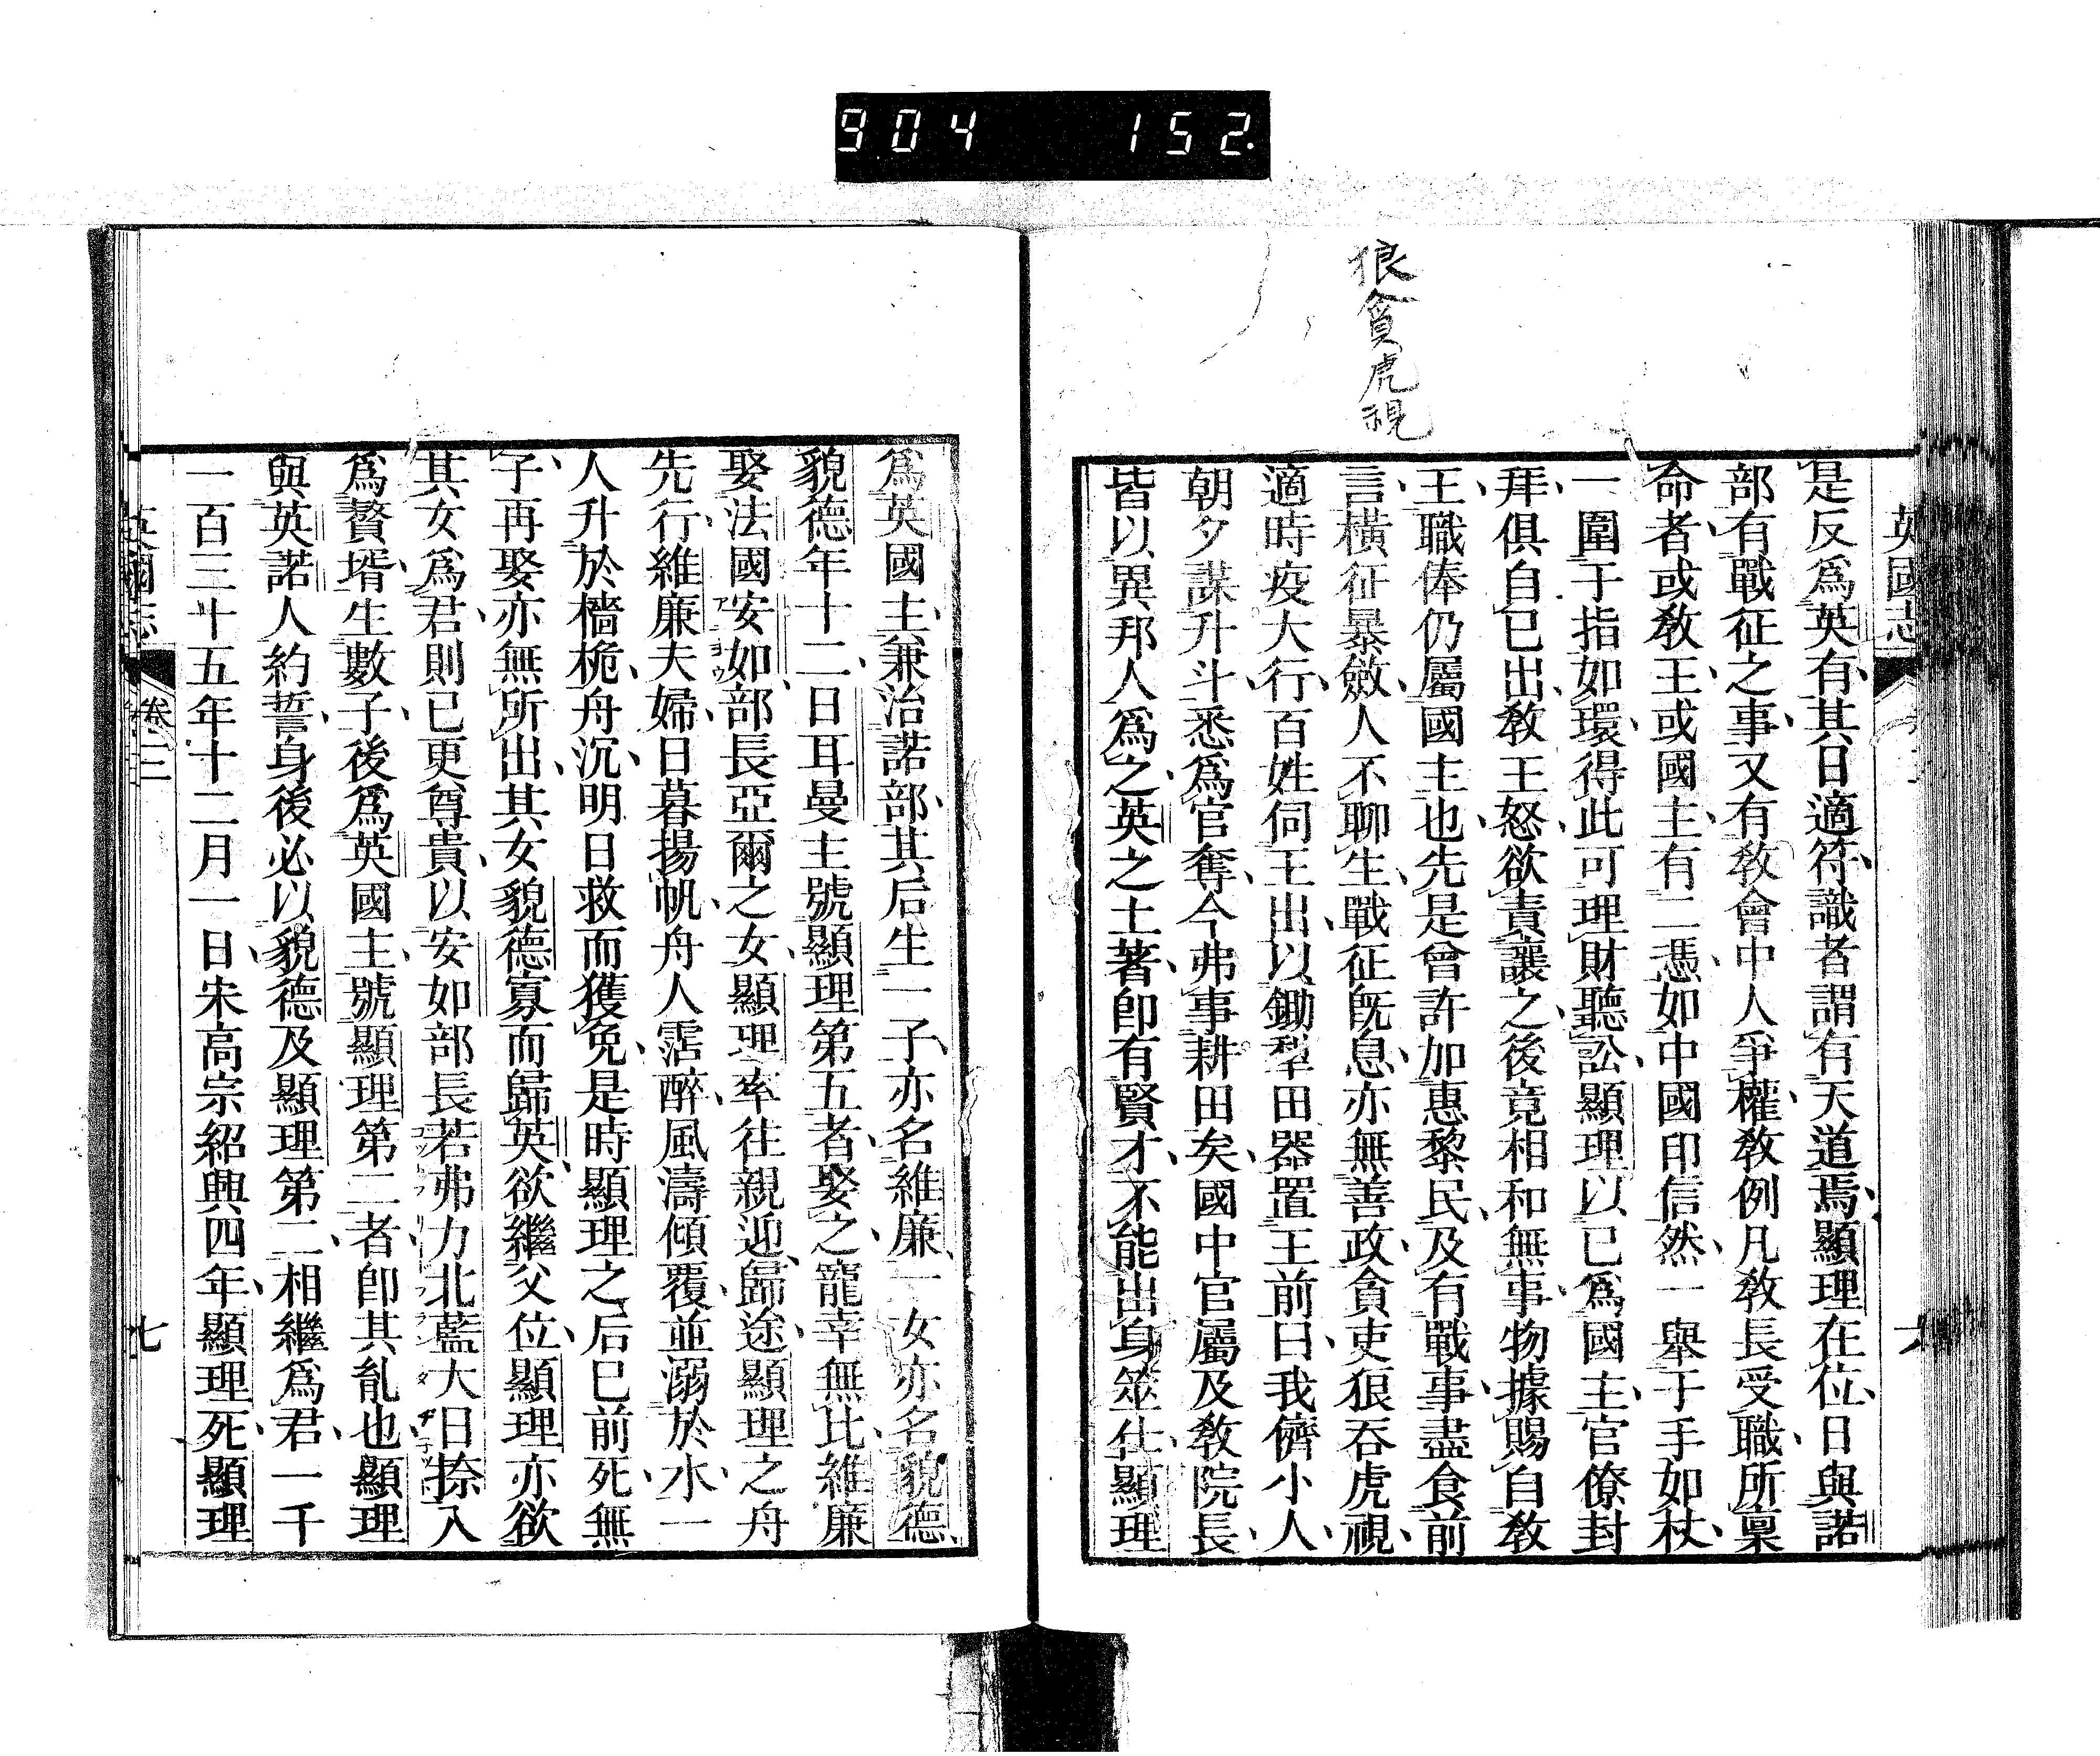 904 152.
狼貪虎視
英國志
是反爲英有其日適符識者謂有天道焉顯理在位日與諾
部有戰征之事又有敎會中人爭權敎例凡敎長受職所稟
命者或敎王或國主有二憑如中國印信然一舉于手如杖
一圍于指如環得此可理財聽訟顯理以已爲國主官僚封
拜俱自已出敎王怒欲責讓之後竟相和無事物據賜自敎
王職俸仍屬國主也先是曾許加惠黎民及有戰事盡食前
言橫征暴斂人不聊生戰征旣息亦無善政貪吏狠吞虎視
適時疫大行百姓伺王出以鋤犂田器置王前曰我儕小人
朝夕謀升斗悉爲官奪今弗事耕田矣國中官屬及敎院長
皆以異邦人爲之英之土著卽有賢才不能出身筮仕顯理
爲英國主兼治諾部其后生一子亦名維廉一女亦名貌德
貌德年十二日耳曼主號顯理第五者娶之寵幸無比維廉
娶法國安如部長亞爾之女顯理率往親迎歸途顯理之舟
先行維廉夫婦日暮揚帆舟人霑醉風濤傾覆並溺於水一
人升於檣桅舟沉明日救而獲免是時顯理之后已前死無
子再娶亦無所出其女貌德寡而歸英欲繼父位顯理亦欲
其女爲君則已更尊貴以安如部長若弗力北藍大日捺入
爲贅壻生數子後爲英國主號顯理第二者卽其胤也顯理
與英諾人約誓身後必以貌德及顯理第二相繼爲君一千
一百三十五年十二月一日宋高宗紹興四年顯理死顯理
英國志 卷三 七